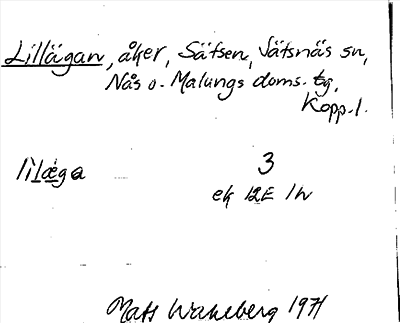 Lillägan, åker, Sätsen, Jätsnäs sn,
Nås o. Malungs doms. tg.
Kopp. l.
lìlæ̀ga 3
ek 12E 1h
Mats Wahlberg 1971